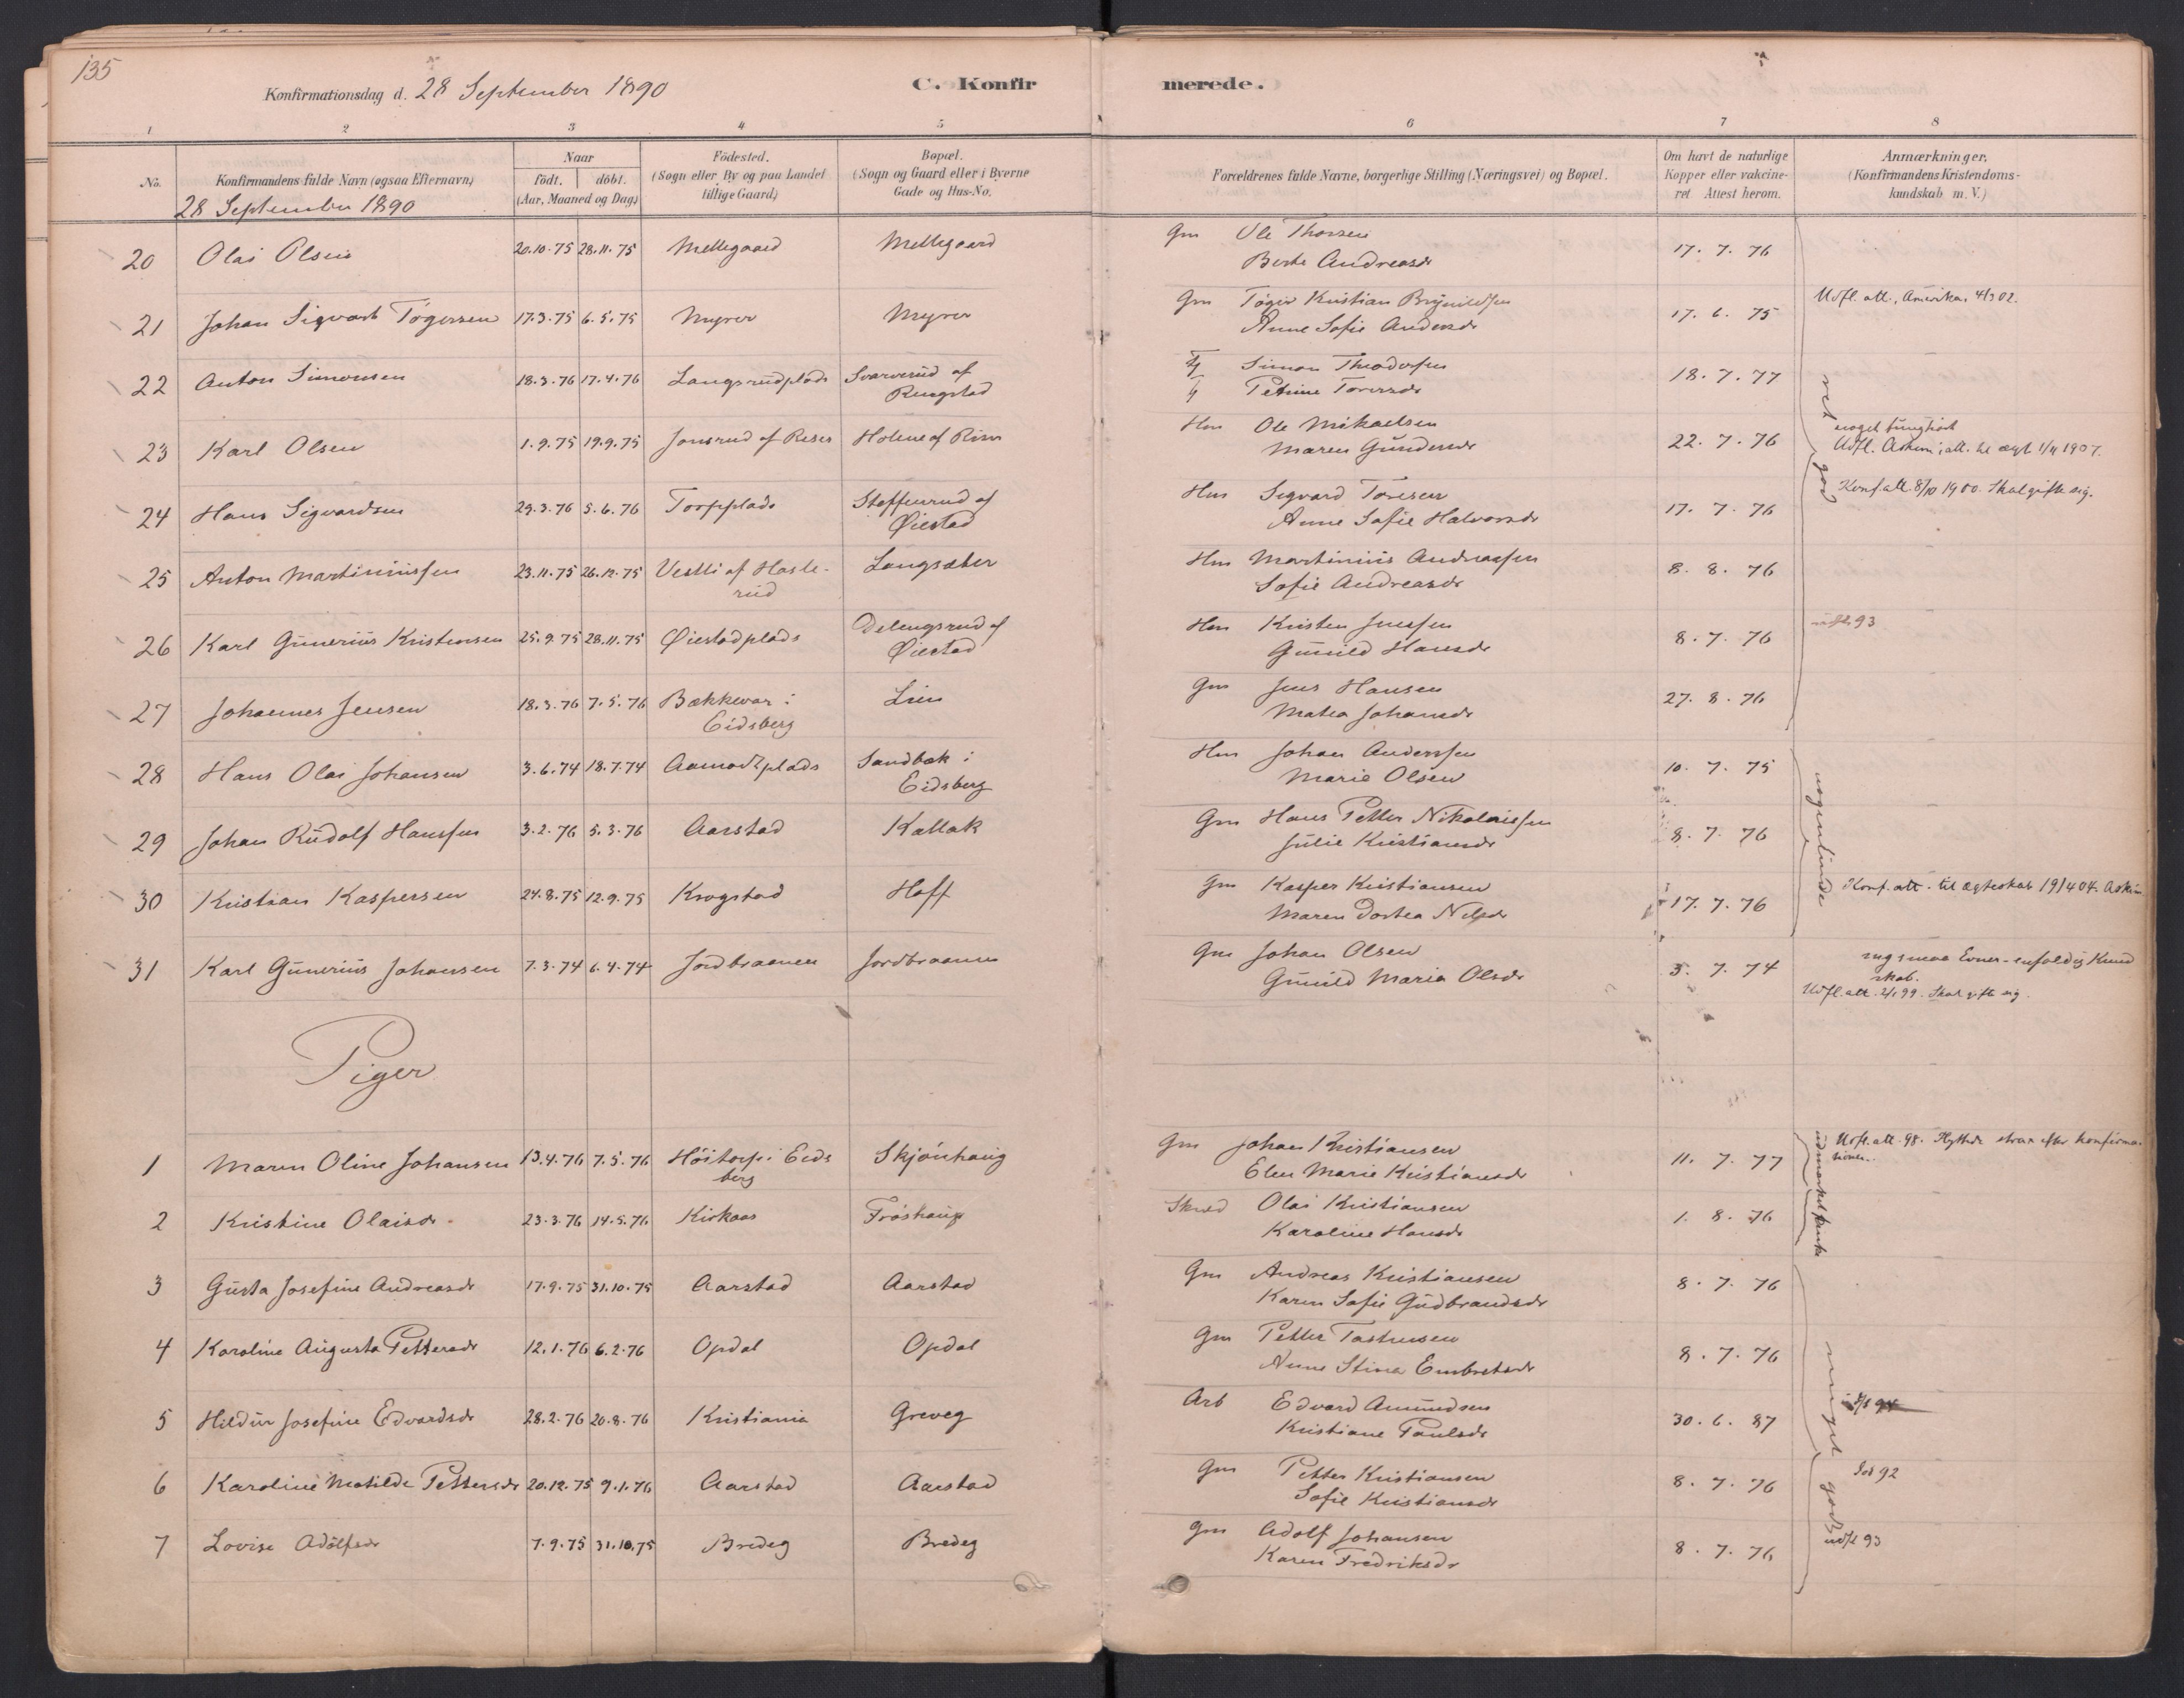 135
Konfirmationsdag d. 28 September 1890
C. Konfir
merede.
1 2 3 4 5 6 7 8
No.
Konfirmandens fulde Navn (ogsaa Efternavn)
Naar
födt. döbt.
(Aar, Maaned og Dag)
Födested.
(Sogn eller By og paa Landet
tillige Gaard)
Bopæl.
(Sogn og Gaard eller i Byerne
Gade og Hus-No.
Forældrenes fulde Navne, borgerlige Stilling (Næringsvei) og Bopæl.
Om havt de naturlige
Kopper eller vakcine-
ret. Attest herom.
Anmærkninger.
(Konfirmandens Kristendoms-
kundskab m. V.)
28 September 1890
20 Olai Olsen 20.10.75 28.11.75 Mellegaard Mellegaard Gm Ole Thorsen
Berte Andreasdr 17. 7. 76
21 Johan Sigvart Tøgersen 17.3.75 6.5.75 Myrer Myrer Gm Tøger Kristian Brynildsen
Anne Sofie Andersdr 17. 6. 75 Udfl. att., Amerika, 4/3 02.
22 Anton Simonsen 18.3.76 17.4.76 Langsrudplads Svarverud af
Rengstad Simon Theodorsen
Petrine Torersdr 18. 7. 77
23 Karl Olsen 1.9.75 19.9.75 Jonsrud af Reser Holene af Risin Hm Ole Mikaelsen
Maren Gundersdr 22. 7. 76 noget tunghørt
Udfl. Askim, att. til ægt. 1/4 1907.
24 Hans Sigvardsen 29.3.76 5.6.76 Torpplads Steffenrud af
Øiestad Hm Sigvard Toresen
Anne Sofie Halvorsdr 17. 7. 76 Konf. att. 8/10 1900. Skal gifte sig.
25 Anton Martiniussen 23.11.75 26.12.75 Vestli af Hasle-
rud Langsæter Hm Martinius Andreassen
Sofie Andreasdr 8. 8. 76
vel god
26 Karl Gunerius Kristensen 25.9.75 28.11.75 Øiestadplads Delengsrud af
Øiestad Hm Kristen Jensen
Gunild Hansdr 8. 7. 76 udfl. 93
27 Johannes Jensen 18.3.76 7.5.76 Bækkevar i
Eidsberg Lien Gm Jens Hansen
Matea Johansdr 27. 8. 76
28 Hans Olai Johansen 3.6.74 18.7.74 Aamodtplads Sandbæk i
Eidsberg Hm Johan Anderssen
Marie Olsen 10. 7. 75
29 Johan Rudolf Hanssen 3.2.76 5.3.76 Aarstad Kallak Gm Hans Petter Nikolaisen
Julie Kristiansdr 8. 7. 76
nogenlunde
30 Kristian Kaspersen 24.8.75 12.9.75 Krogstad Hoff Gm Kasper Kristiansen
Maren Dortea Nilsdr 17. 7. 76 Konf. att. til ægteskab 19/4 04. Askim
31 Karl Gunerius Johansen 7.3.74 6.4.74 Jordbraanen Jordbraanen Gm Johan Olsen
Gunild Maria Olsdr 3. 7. 74 smaa Evner - enfoldig Kund
skab.
Udfl. att. 2/1 99. Skal gifte sig.
Piger
1 Maren Oline Johansen 13.4.76 7.5.76 Höitorp i Eids
berg Skjönhaug Gm Johan Kristiansen
Elen Marie Kristiansdr 11. 7. 77 Udfl. att. 98. Flyttede strax efter konfirma-
tionen.
2 Kristine Olaisdr. 23.3.76 14.5.76 Kirkaas Fröshaug Skræd Olai Kristiansen
Karoline Hansdr 1. 8. 76
3 Gusta Josefine Andreasdr 17.9.75 31.10.75 Aarstad Aarstad Gm Andreas Kristiansen
Karen Sofie Gudbrandsdr 8. 7. 76
4 Karoline Augusta Pettersdr 12.1.76 6.2.76 Opdal Opdal Gm Petter Tostensen
Anne Stina Embretsdr 8. 7. 76
5 Hildur Josefine Edvardsdr 28.2.76 20.8.76 Kristiania Greveg Arb Edvard Amundsen
Kristiane Paulsdr 30. 6. 87
meget god
6 Karoline Matilde Pettersdr 20.12.75 9.1.76 Aarstad Aarstad Gm Petter Kristiansen
Sofie Kristiansdr 8. 7. 76 92
7 Lovise Adolfsdr 7.9.75 31.10.75 Bredeg Bredeg Gm Adolf Johansen
Karen Fredriksdr 8. 7. 76 udfl 93